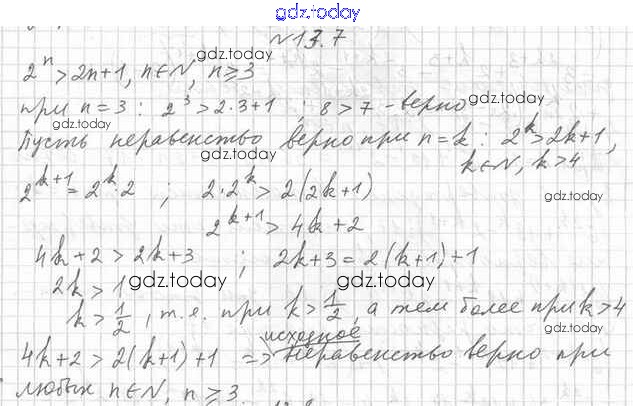 gdz.today
№13.7
gdz.today
2ⁿ > 2n+1, n∈N, n⩾3
при n=3 : 2³ > 2·3+1 ; 8 > 7 - верно
gdz.today
gdz.today
Пусть неравенство верно при n=k : 2ᵏ > 2k+1,
gdz.today
k∈N, k>4
2ᵏ⁺¹ = 2ᵏ·2 ; 2·2ᵏ > 2(2k+1)
gdz.today
2ᵏ⁺¹ > 4k+2
4k+2 > 2k+3 ; 2k+3 = 2(k+1)+1
2k > 1
gdz.today
gdz.today
k > 1/2, т.е. при k > 1/2, а тем более при k>4
gdz.today
исходное
4k+2 > 2(k+1)+1 => неравенство верно при
любых n∈N, n⩾3.
gdz.today